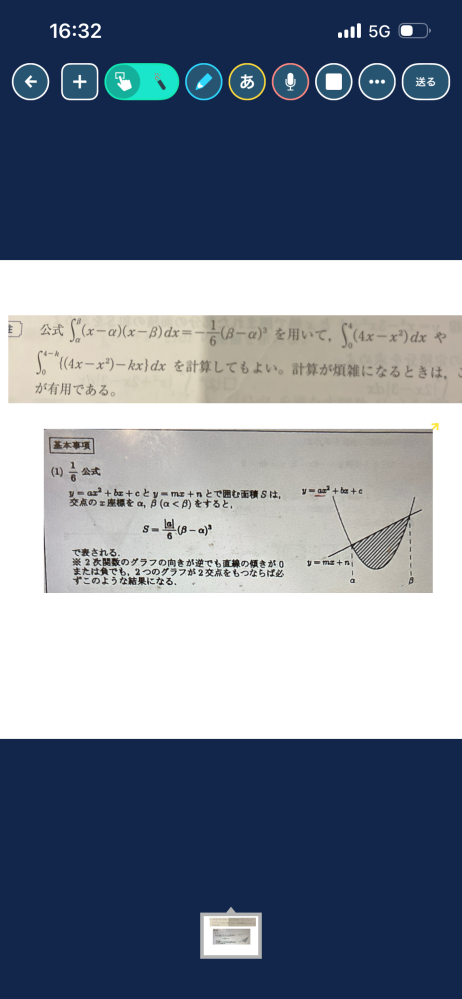 16:32
5G
あ
送る
公式 ∫_α^β(x−α)(x−β)dx=−1/6(β−α)³ を用いて，∫_0^4(4x−x²)dx や
∫_0^{4−k}{(4x−x²)−kx}dx を計算してもよい。計算が煩雑になるときは，
が有用である。
基本事項
(1) 1/6 公式
y=ax²+bx+c と y=mx+n とで囲む面積 S は，
交点の x 座標を α, β (α<β) をすると，
S=|a|/6(β−α)³
で表される．
※ 2 次関数のグラフの向きが逆でも直線の傾きが 0
または負でも，2 つのグラフが 2 交点をもつならば必
ずこのような結果になる．
y=ax²+bx+c
y=mx+n
α
β